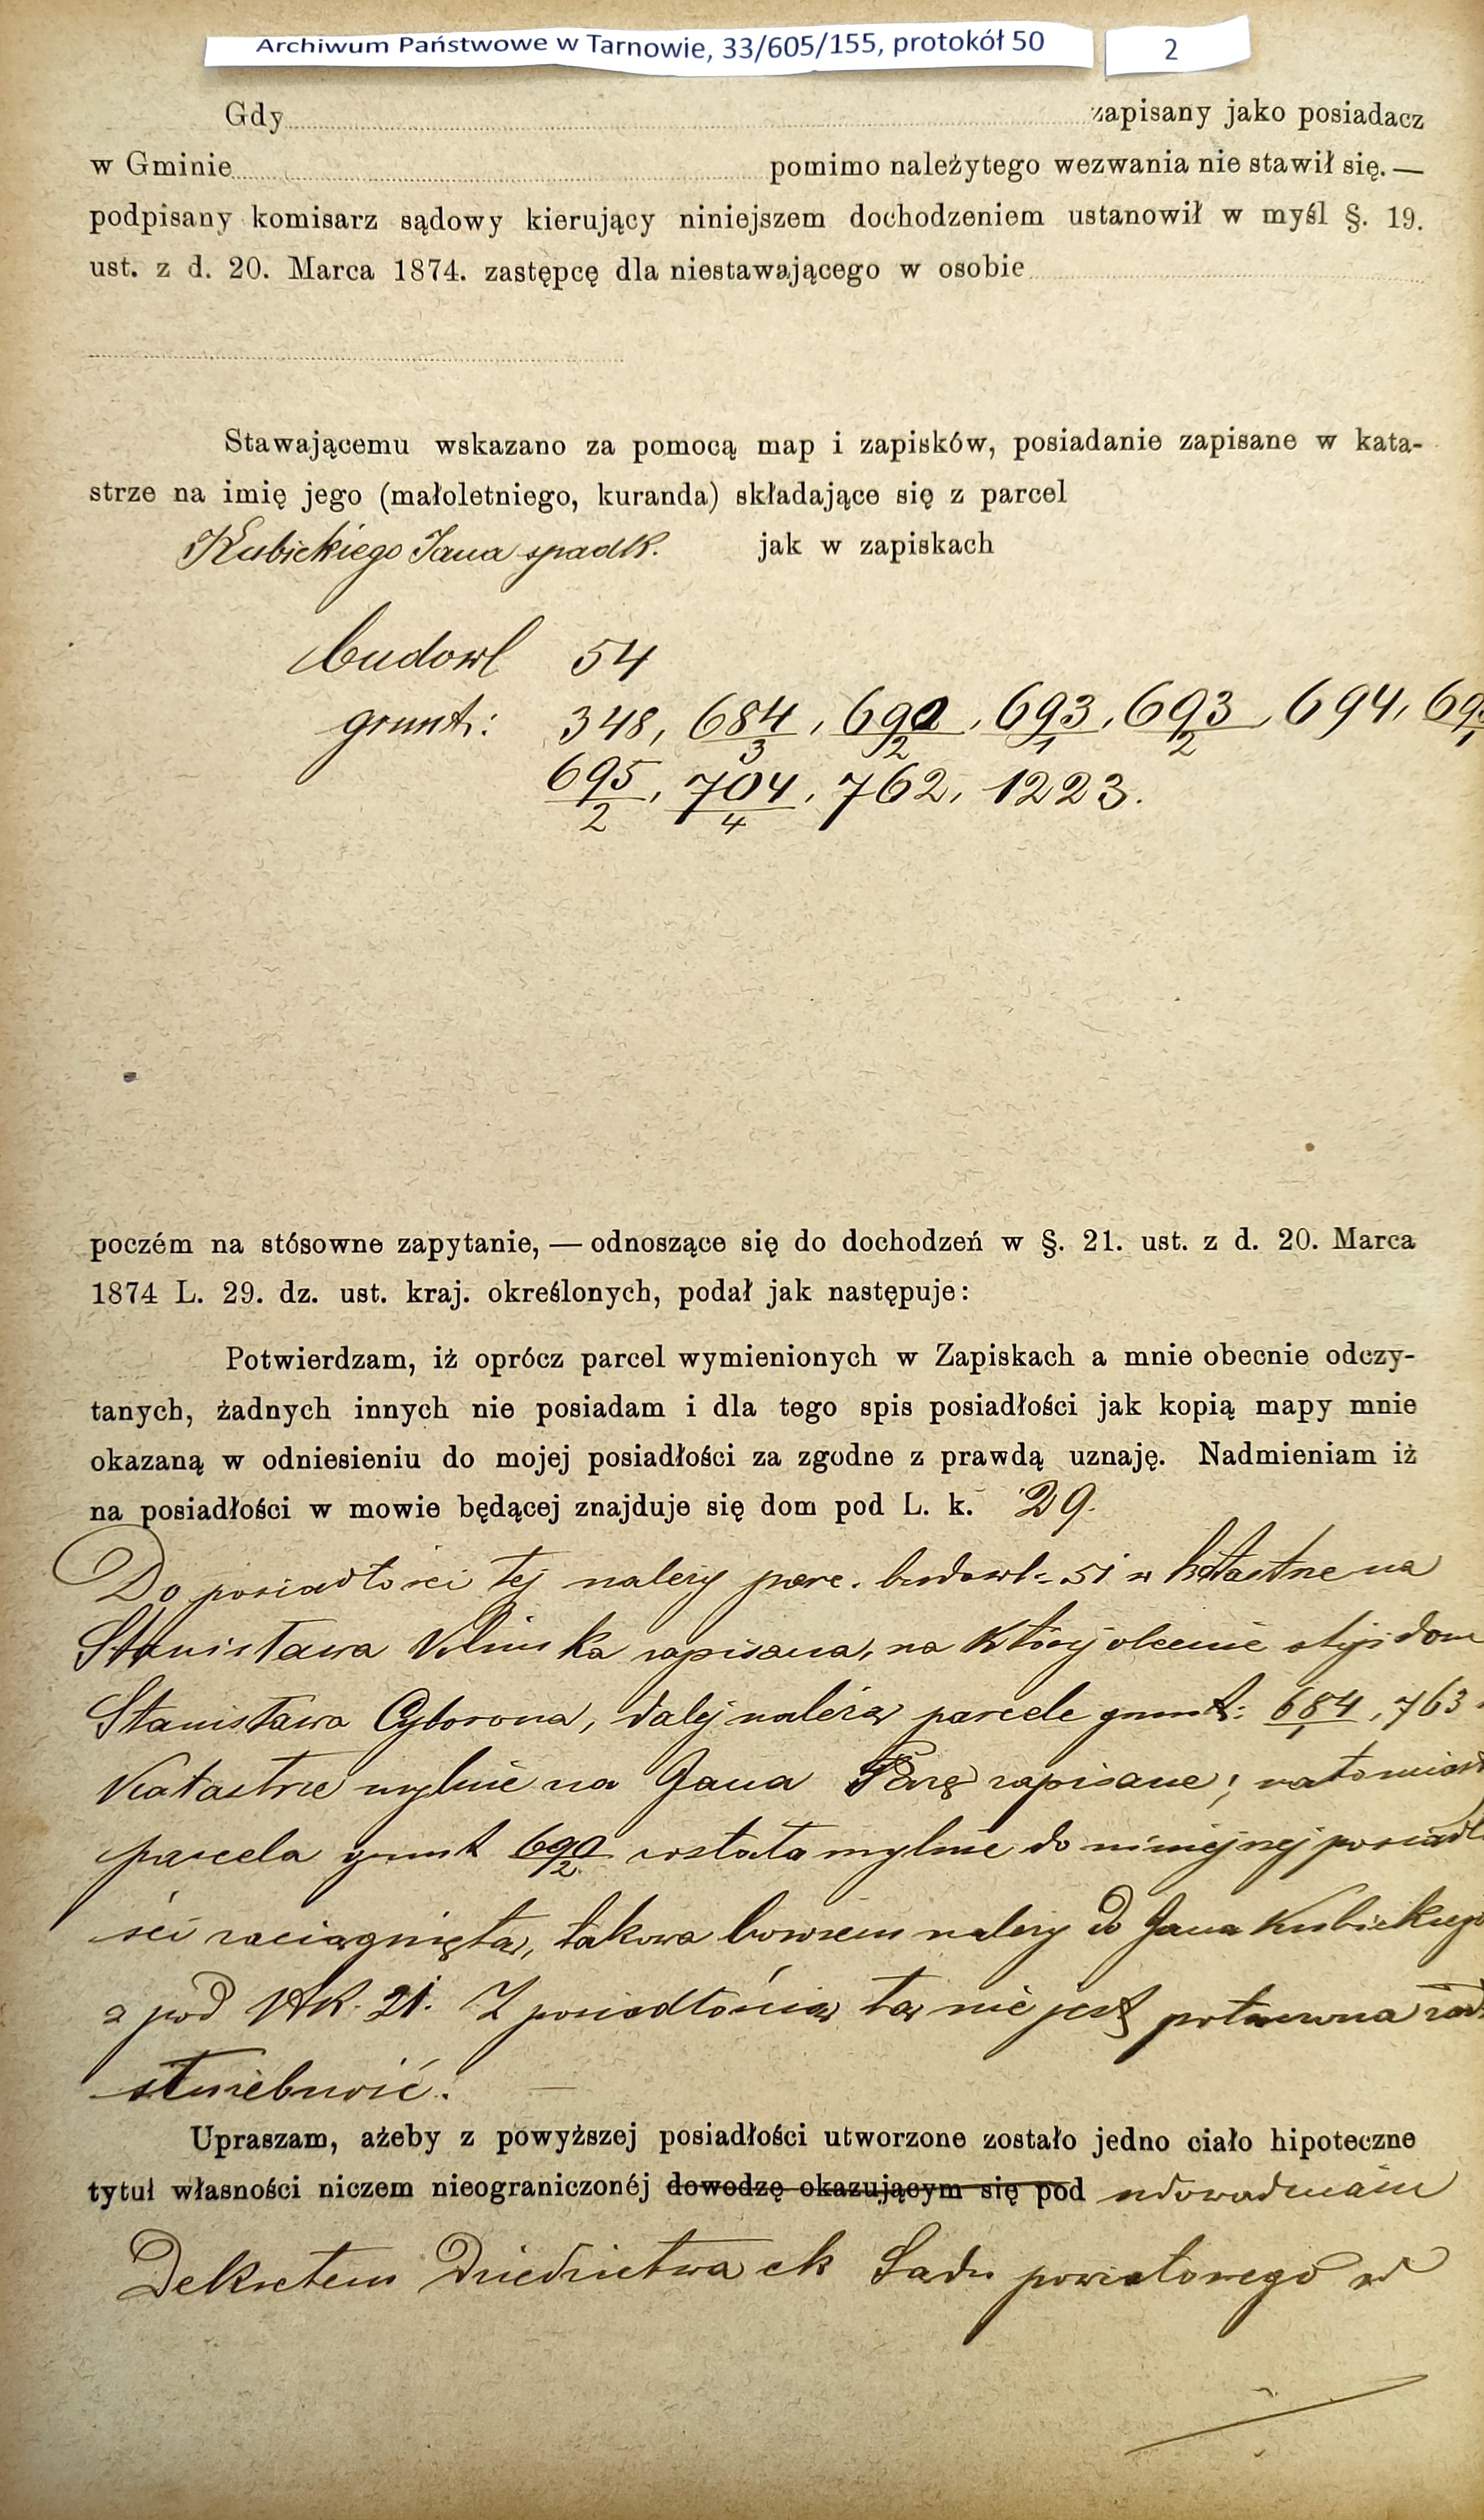 Archiwum Państwowe w Tarnowie, 33/605/155, protokół 50 2
Gdy zapisany jako posiadacz
w Gminie pomimo należytego wezwania nie stawił się. —
podpisany komisarz sądowy kierujący niniejszem dochodzeniem ustanowił w myśl §. 19.
ust. z d. 20. Marca 1874. zastępcę dla niestawającego w osobie
Stawającemu wskazano za pomocą map i zapisków, posiadanie zapisane w kata-
strze na imię jego (małoletniego, kuranda) składające się z parcel
Kubickiego Jana spadk. jak w zapiskach
budowl 54
grunt: 348, 684/3, 690/2, 693/1, 693/2, 694,
695/2, 704/4, 762, 1223.
poczém na stósowne zapytanie, — odnoszące się do dochodzeń w §. 21. ust. z d. 20. Marca
1874 L. 29. dz. ust. kraj. określonych, podał jak następuje:
Potwierdzam, iż oprócz parcel wymienionych w Zapiskach a mnie obecnie odczy-
tanych, żadnych innych nie posiadam i dla tego spis posiadłości jak kopią mapy mnie
okazaną w odniesieniu do mojej posiadłości za zgodne z prawdą uznaję. Nadmieniam iż
na posiadłości w mowie będącej znajduje się dom pod L. k. 29.
Do posiadłości tej należy parc. budowl. 51 w katastrze na
Stanisława zapisana, na której obecnie stoji dom
Stanisława Cyborona, dalej należą parcele grunt: 684/1, 763
Katastrze mylnie na Jana zapisane; natomiast
parcela grunt 690/2 została mylnie do niniejszej posiadło
ści zaciągnięta, takowa bowiem należy do Jana Kubickiego
z pod Nk. 21. Z posiadłością tą nie jest połączona żad
służebność.
Upraszam, ażeby z powyższej posiadłości utworzone zostało jedno ciało hipoteczne
tytuł własności niczem nieograniczonéj dowodzę okazującym się pod udowadniam
Dekretem Dziedzictwa ck Sądu powiatowego w